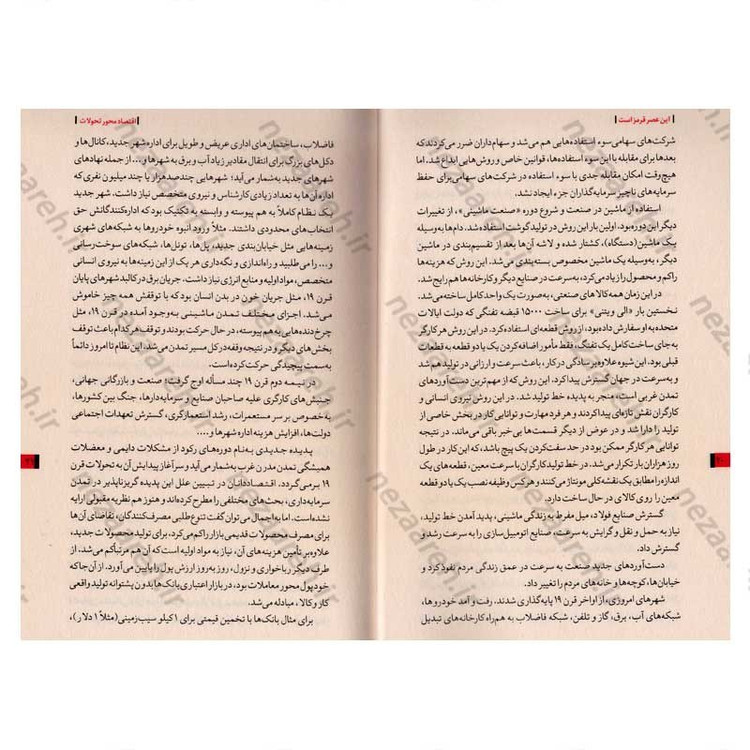 این عصر قرمز است
شرکت‌های سهامی سوء استفاده‌هایی هم می‌شد و سهام‌داران ضرر می‌کردند که
بعدها برای مقابله با این سوء استفاده‌ها، قوانین خاص و روش‌هایی ابداع شد. اما
هیچ‌وقت امکان مقابله جدی با سوء استفاده در شرکت‌های سهامی برای حفظ
سرمایه‌های ناچیز سرمایه‌گذاران جزء ایجاد نشد.
استفاده از ماشین در صنعت و شروع دوره «صنعت ماشینی»، از تغییرات
دیگر این دوره بود. اولین بار این روش در تولید گوشت استفاده شد. دام‌ها به وسیله
یک ماشین (دستگاه)، کشتار شده و لاشه آن‌ها بعد از تقسیم‌بندی در ماشین
دیگر، به‌وسیله یک ماشین مخصوص بسته‌بندی می‌شد. این روش که هزینه‌ها
را کم و محصول را زیاد می‌کرد، به‌سرعت در صنایع دیگر و کارخانه‌ها هم رایج شد.
در این زمان همه کالاهای صنعتی، به‌صورت یک واحد کامل ساخته می‌شد.
نخستین بار «الی ویتنی» برای ساخت ۱۵۰۰۰ قبضه تفنگی که دولت ایالات
متحده به او سفارش داده بود، از روش قطعه‌ای استفاده کرد. در این روش هر کارگر
به‌جای ساخت کامل یک تفنگ، فقط مأمور اضافه‌کردن یک یا دو قطعه به قطعات
قبلی بود. این شیوه علاوه بر سادگی در کار، باعث سرعت و ارزانی در تولید هم شد
و به‌سرعت در جهان گسترش پیدا کرد. این روش که از مهم‌ترین دست‌آوردهای
تمدن غربی است، منجر به پدیده خط تولید شد. در این روش نیروی انسانی و
کارگران نقش تازه‌ای پیدا کردند و هر فرد مهارت و توانایی کار در بخش خاصی از
تولید را دارا شد و در عوض از دیگر قسمت‌ها بی خبر باقی می‌ماند. در نتیجه
توانایی هر کارگر ممکن بود در حد سفت‌کردن یک پیچ باشد، که این کار در طول
روز هزاران بار تکرار می‌شد. در خط تولید کارگران با سرعت معین، قطعه‌های یک
اندازه را مطابق یک نقشه کلی مونتاژ می‌کنند و هرکس وظیفه نصب یک یا دو قطعه
معین را روی کالای در حال ساخت دارد.
گسترش صنایع فولاد، میل مفرط به زندگی ماشینی، پدید آمدن خط تولید،
نیاز به حمل و نقل و گرایش به سرعت، صنایع اتومبیل‌سازی را به سرعت رشد و
گسترش داد.
دست‌آوردهای جدید صنعت به سرعت در عمق زندگی مردم نفوذ کرد و
خیابان‌ها، کوچه‌ها و خانه‌های مردم را تغییر داد.
شهرهای امروزی، از اواخر قرن ۱۹ پایه‌گذاری شدند. رفت و آمد خودروها،
شبکه‌های آب، برق، گاز و تلفن، شبکه فاضلاب به همراه کارخانه‌های تبدیل
اقتصاد محور تحولات
فاضلاب، ساختمان‌های اداری عریض و طویل برای اداره شهر جدید، کانال‌ها و
دکل‌های بزرگ برای انتقال مقادیر زیاد آب و برق به شهرها و... از جمله نهادهای
شهرهای جدید به‌شمار می‌آید؛ شهرهایی چندصدهزار یا چند میلیون نفری که
اداره آن‌ها به تعداد زیادی کارشناس و نیروی متخصص نیاز داشت. شهر جدید
یک نظام کاملاً به هم پیوسته و وابسته به تکنیک بود که اداره‌کنندگانش حق
انتخاب‌های محدودی داشتند. مثلاً ورود انبوه خودروها به شبکه‌های شهری
زمینه‌هایی مثل خیابان‌بندی جدید، پل‌ها، تونل‌ها، شبکه‌های سوخت‌رسانی
و... را می‌طلبید و راه‌اندازی و نگه‌داری هر یک از این زمینه‌ها به نیروی انسانی
متخصص، مواد اولیه و منابع انرژی نیاز داشت. جریان برق در کالبد شهرهای پایان
قرن ۱۹، مثل جریان خون در بدن انسان بود که با توقفش همه چیز خاموش
می‌شد. اجزای مختلف تمدن ماشینی به‌وجود آمده در قرن ۱۹، مثل
چرخ‌دنده‌هایی به هم پیوسته، در حال حرکت بودند و توقف هرکدام باعث توقف
بخش‌های دیگر و در نتیجه وقفه در کل مسیر تمدن می‌شد. این نظام تا امروز دائماً
به سمت پیچیدگی حرکت کرده است.
در نیمه دوم قرن ۱۹ چند مسأله اوج گرفت؛ صنعت و بازرگانی جهانی،
جنبش‌های کارگری علیه صاحبان صنایع و سرمایه‌دارها، جنگ بین کشورها،
به‌خصوص بر سر مستعمرات، رشد استعمارگری، گسترش تعهدات اجتماعی
دولت‌ها، افزایش هزینه اداره شهرها و....
پدیده جدیدی به‌نام دوره‌های رکود از مشکلات دایمی و معضلات
همیشگی تمدن مدرن غرب به‌شمار می‌آید و سرآغاز پیدایش آن به تحولات قرن
۱۹ برمی‌گردد. اقتصاددانان در تبیین علل این پدیده گریزناپذیر در تمدن
سرمایه‌داری، بحث‌های مختلفی را مطرح کرده‌اند و هنوز هم نظریه مقبولی ارایه
نشده است. اما به اجمال می‌توان گفت تنوع‌طلبی مصرف‌کنندگان، تقاضای آن‌ها
برای مصرف محصولات قدیمی را کم می‌کرد، برای تولید محصولات جدید،
علاوه بر تأمین هزینه‌های آن، نیاز به مواد اولیه است که آن هم مرتباً کم می‌شد. از
طرف دیگر رباخواری و نزول، روز به روز ارزش پول را پایین می‌آورد. از آن‌جا که
خود پول محور معاملات بود، در بازار اعتباری بانک‌ها بدون پشتوانه تولید واقعی
کار و کالا، مبادله می‌شد.
برای مثال بانک‌ها با تخمین قیمتی برای ۱ کیلو سیب‌زمینی (مثلاً ۱ دلار)،
nezaareh.ir